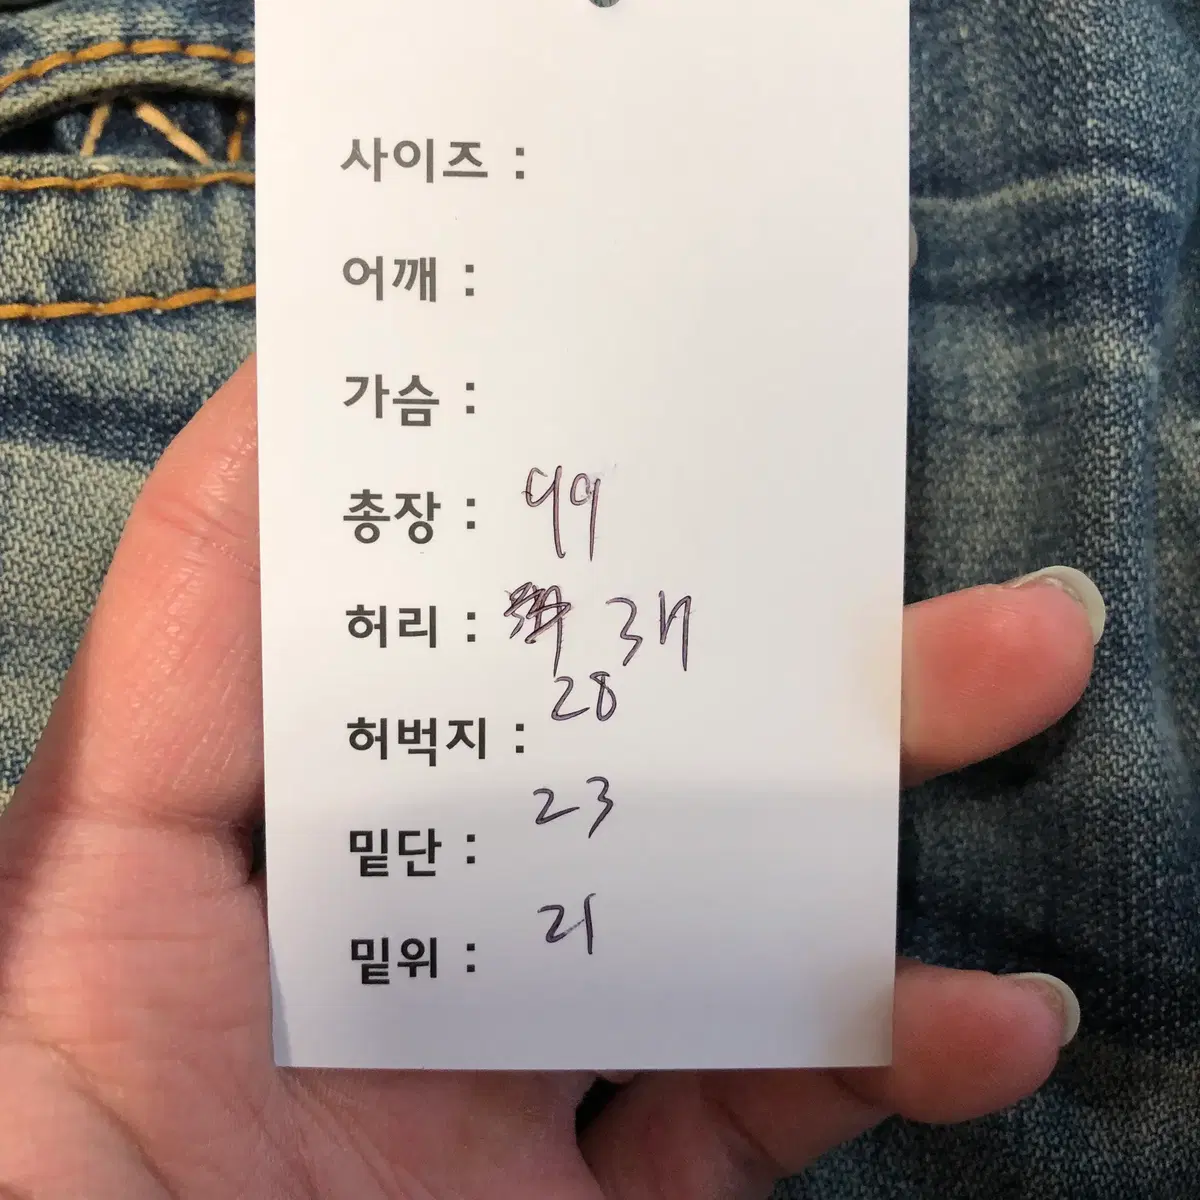 사이즈 :
어깨 :
가슴 :
총장 : 99
허리 : 37
허벅지 : 28
밑단 : 23
밑위 : 21